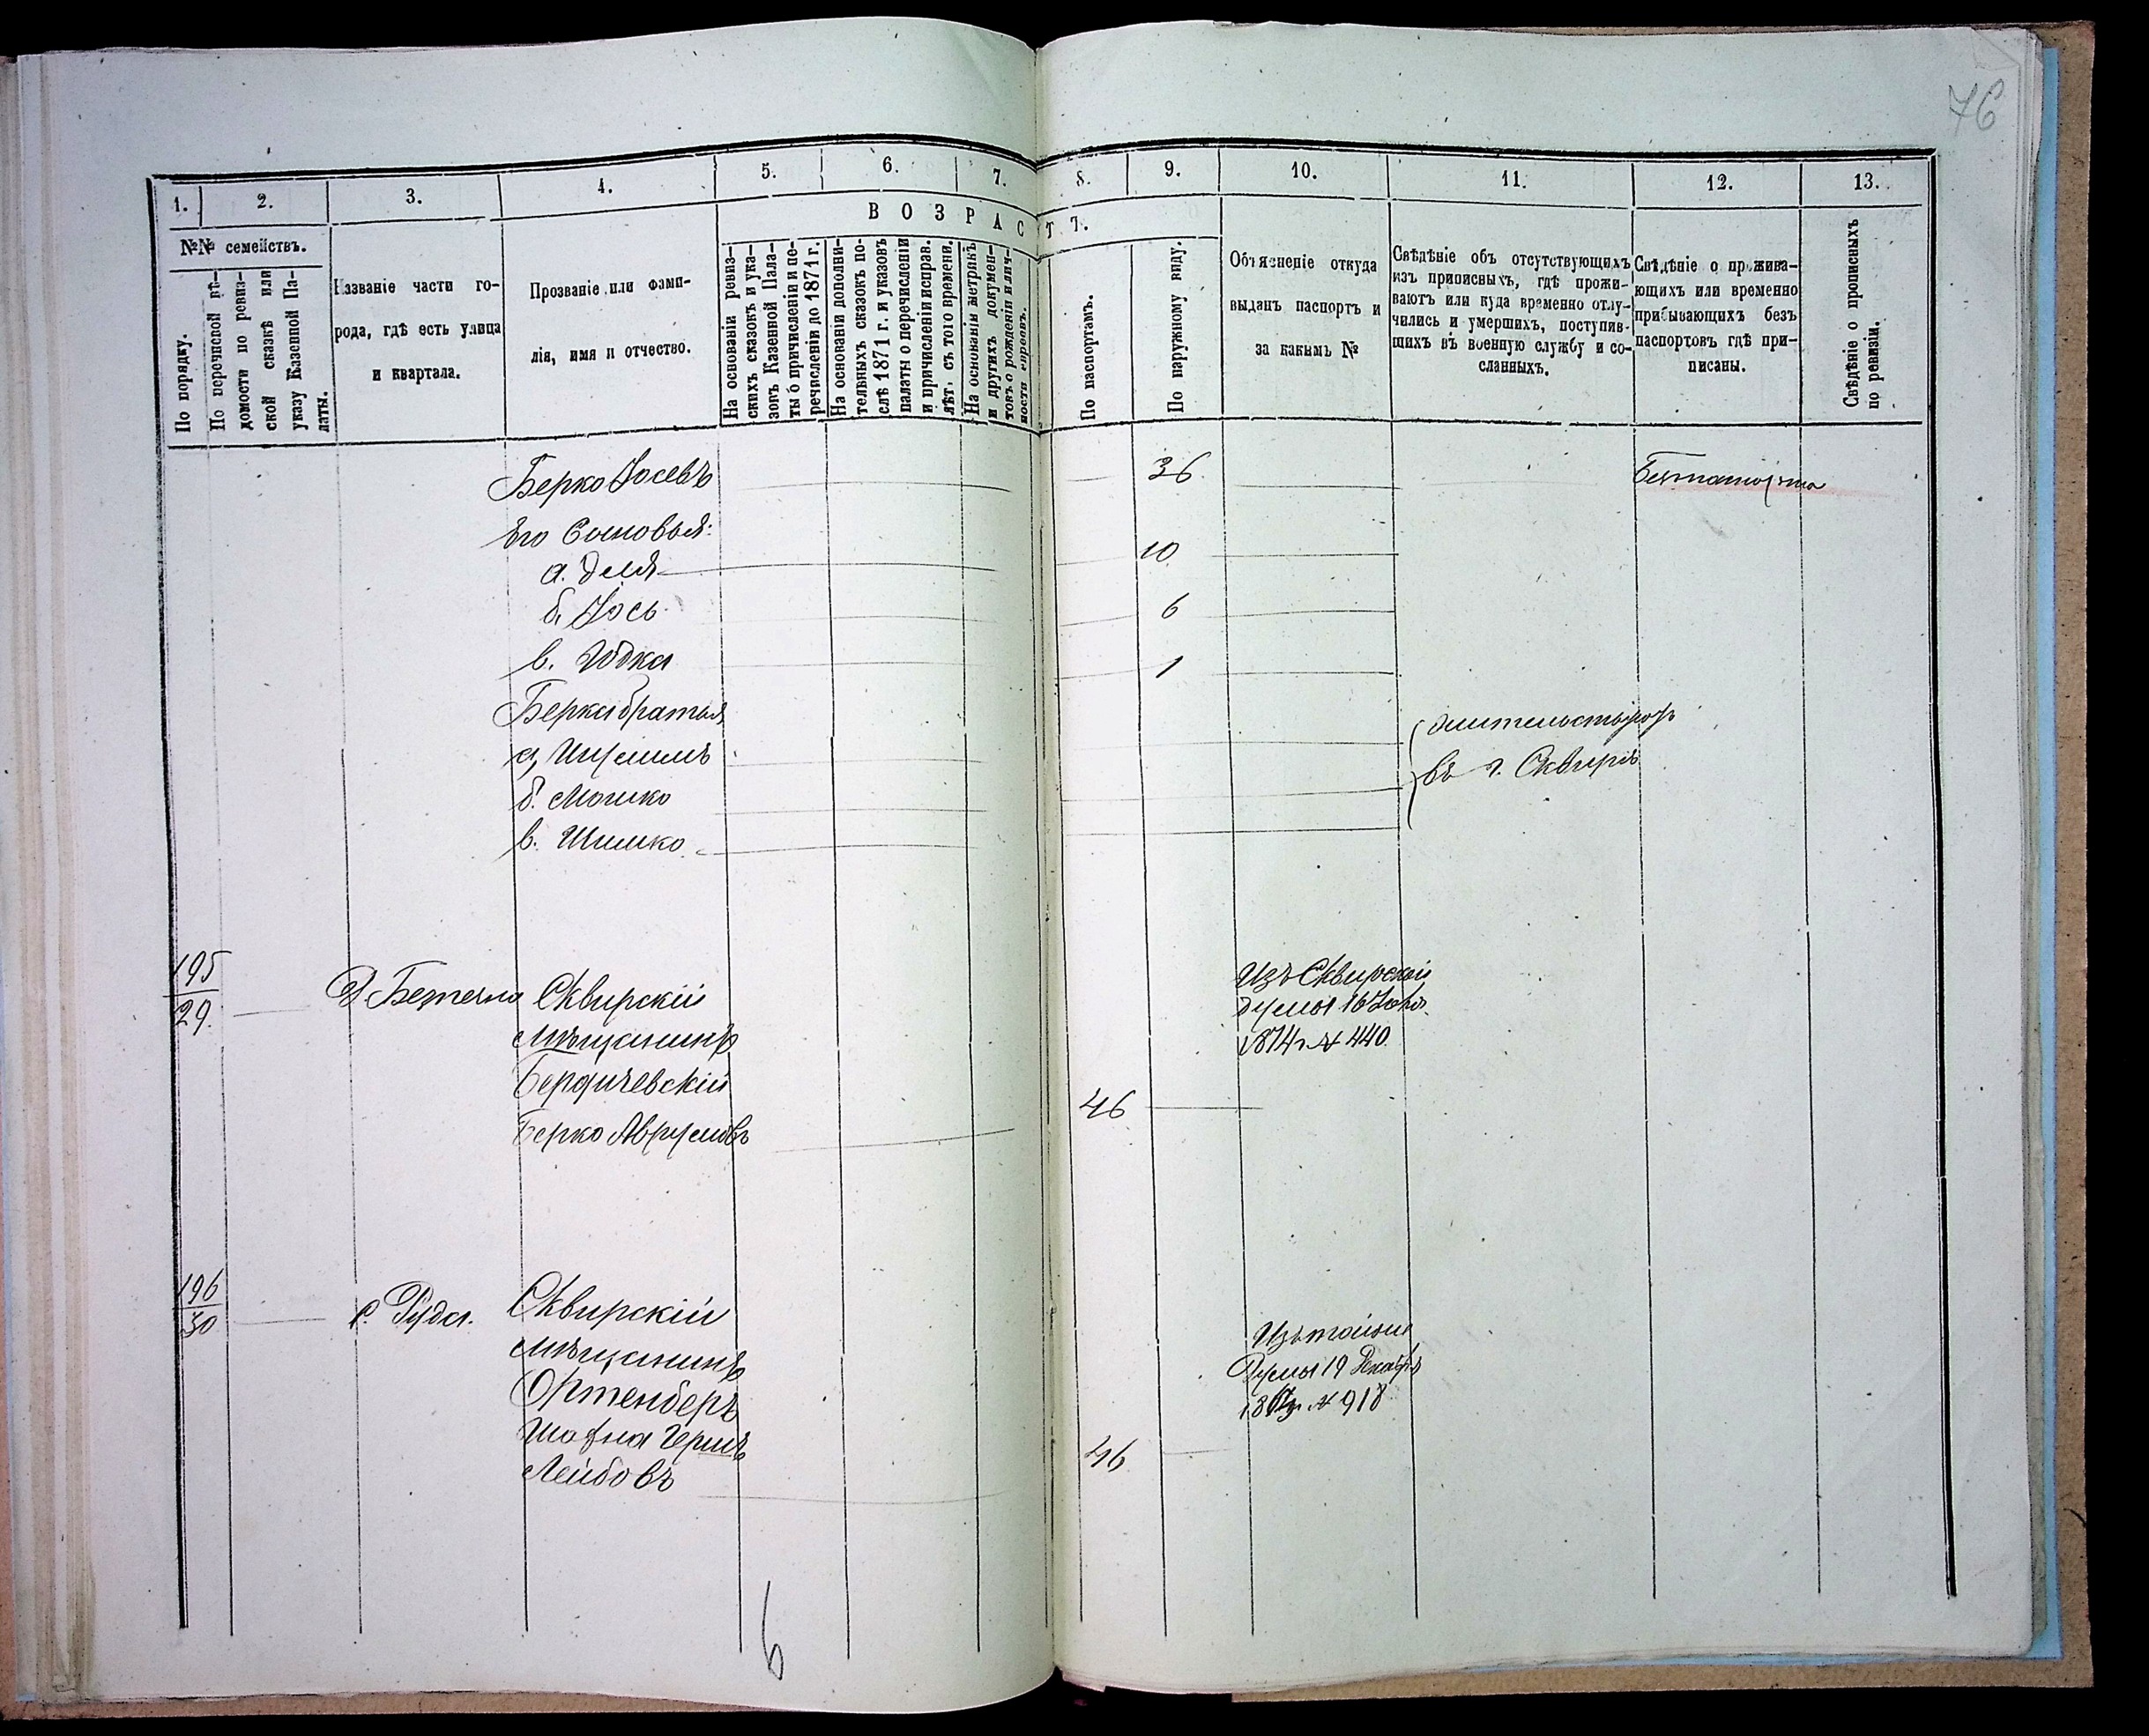 76
1.
2.
3.
4.
5.
6.
7.
8.
9.
10.
11.
12.
13.
№№ семействъ.
По порядку.
По переписной вѣ-
домости по ревиз-
ской сказкѣ или
указу Казенной Па-
латы.
Названіе части го-
рода, гдѣ есть улица
и квартала.
Прозваніе или фами-
лія, имя и отчество.
ВОЗРАСТЪ.
На основаніи ревиз-
скихъ сказокъ и ука-
зовъ Казенной Пала-
ты о причисленіи и пе-
речисленіи до 1871 г.
На основаніи дополни-
тельныхъ сказокъ по-
слѣ 1871 г. и указовъ
палаты о перечисленіи
и причисленіи исправ.
лѣт. съ того времени.
На основаніи метрикъ
и другихъ докумен-
товъ о рожденіи и лич-
ности евреевъ.
По паспортамъ.
По наружному виду.
Объясненіе откуда
выданъ паспортъ и
за какимъ №
Свѣдѣніе объ отсутствующихъ
изъ приписныхъ, гдѣ прожи-
ваютъ или куда временно отлу-
чились и умершихъ, поступив-
шихъ въ военную службу и со-
сланныхъ.
Свѣдѣніе о прожива-
ющихъ или временно
прибывающихъ безъ
паспортовъ гдѣ при-
писаны.
Свѣдѣніе о прописныхъ
по ревизіи.
Берко Іосевъ 36
Его Сыновья:
а. Эля 10
б. Іось 6
в. Юдка 1
Берка братья
а,
б. Мошко въ г. Сквирѣ
в. Шимко
195
29. Сквирскій
мѣщанинъ
Бердичевскій
Берко Аврумовъ 46
Изъ Сквирской
думы 16
1874 г. № 440
196
30 с. Руда. Сквирскій
мѣщанинъ
Ортенберъ
Гершъ
Лейбовъ 46
Изъ тойже
Думы 19 Декабря
№ 918
6